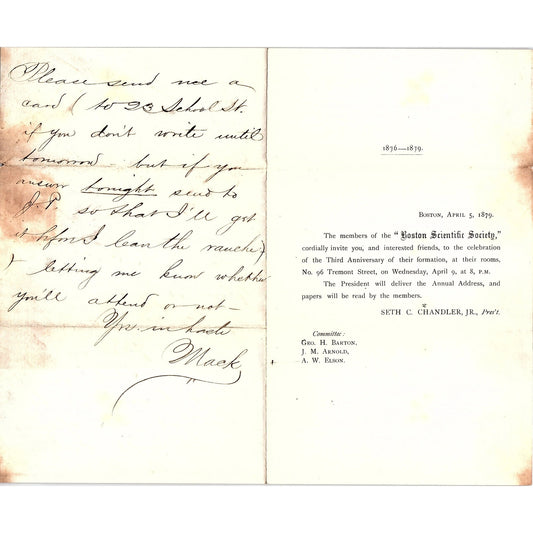 Please send me a
card (to 23 School St.
if you don't write until
tomorrow - but if you
answer tonight send to
J.P. so that I'll get
it before I leave the ranche)
letting me know whether
you'll attend or not -
Yrs. in haste
Mack
1876—1879.
Boston, April 5, 1879.
The members of the "Boston Scientific Society,"
cordially invite you, and interested friends, to the celebration
of the Third Anniversary of their formation, at their rooms,
No. 96 Tremont Street, on Wednesday, April 9, at 8, P.M.
The President will deliver the Annual Address, and
papers will be read by the members.
SETH C. CHANDLER, JR., Pres't.
Committee:
Geo. H. Barton,
J. M. Arnold,
A. W. Elson.